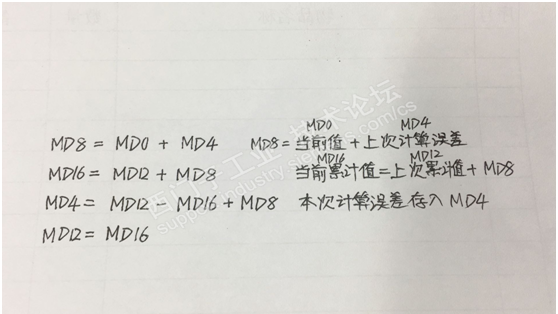 MD0 MD4
MD8 = MD0 + MD4 MD8 = 当前值 + 上次计算误差
MD16 MD12
MD16 = MD12 + MD8 当前累计值 = 上次累计值 + MD8
MD4 = MD12 - MD16 + MD8 本次计算误差存入 MD4
MD12 = MD16
西门子工业 技术论坛
support.industry.siemens.com/cs